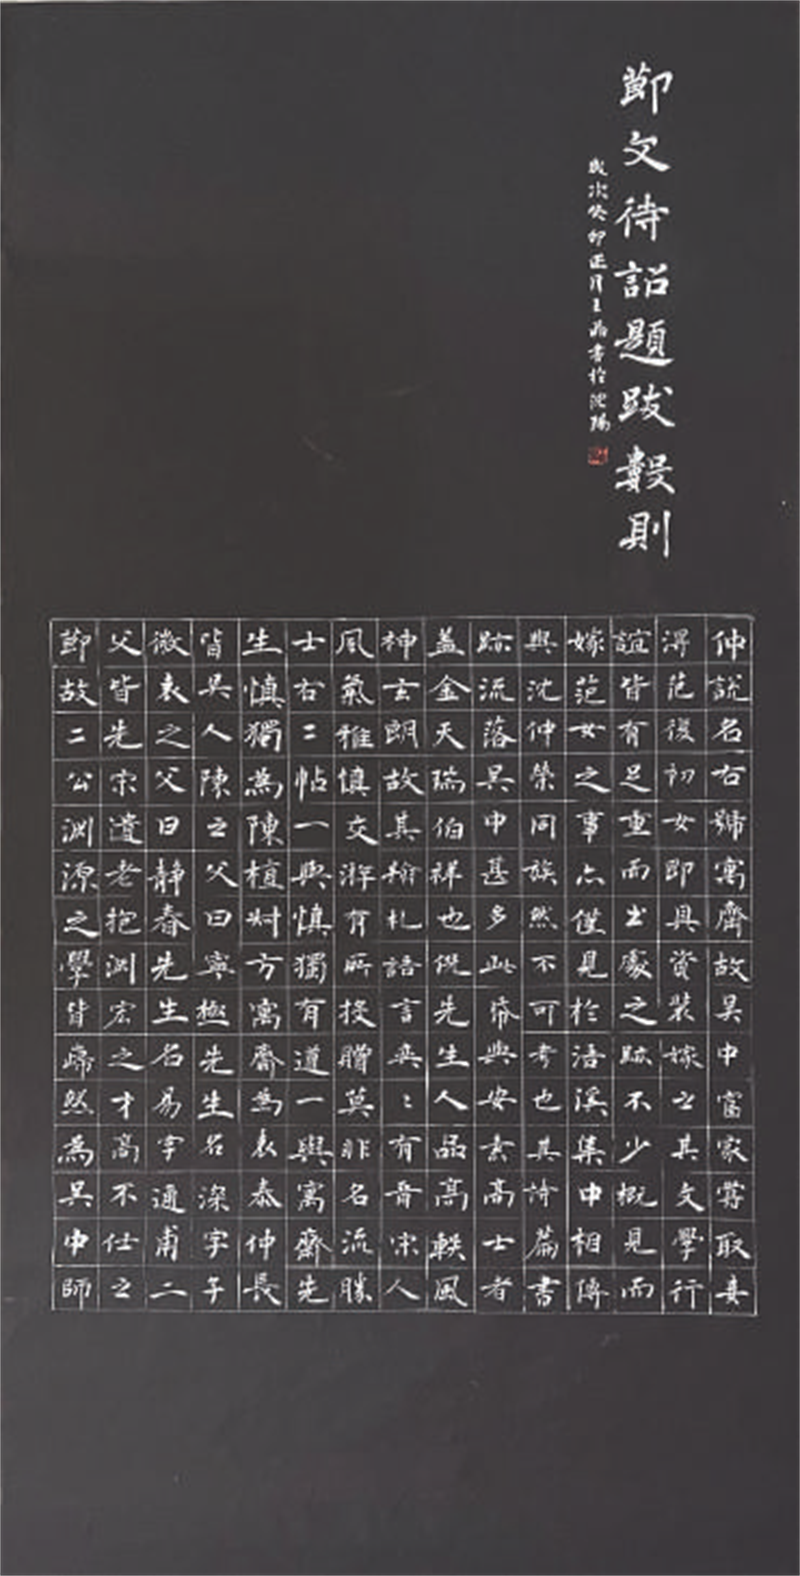 節文待詔題跋數則
歲次癸卯正月王書於沈陽
仲說名右號寓齋故吳中富家嘗取妻
淂范復初女即具資裝嫁之其文學行
誼皆有足重而出處之跡不少概見而
嫁范女之事亦僅見於浯溪集中相傳
與沈仲榮同族然不可考也其詩篇書
跡流落吳中甚多此帋與安素高士者
蓋金天瑞伯祥也倪先生人品高軼風
神玄朗故其翰札語言奕〻有晉宋人
風氣雅慎交游有所投贈莫非名流勝
士右二帖一與慎獨有道一與寓齋先
生慎獨為陳植叔方寓齋為袁泰仲長
皆吳人陳之父曰寧極先生名深字子
微袁之父曰靜春先生名易字通甫二
父皆先宋遺老抱淵宏之才高不仕之
節故二公淵源之學皆巋然為吳中師